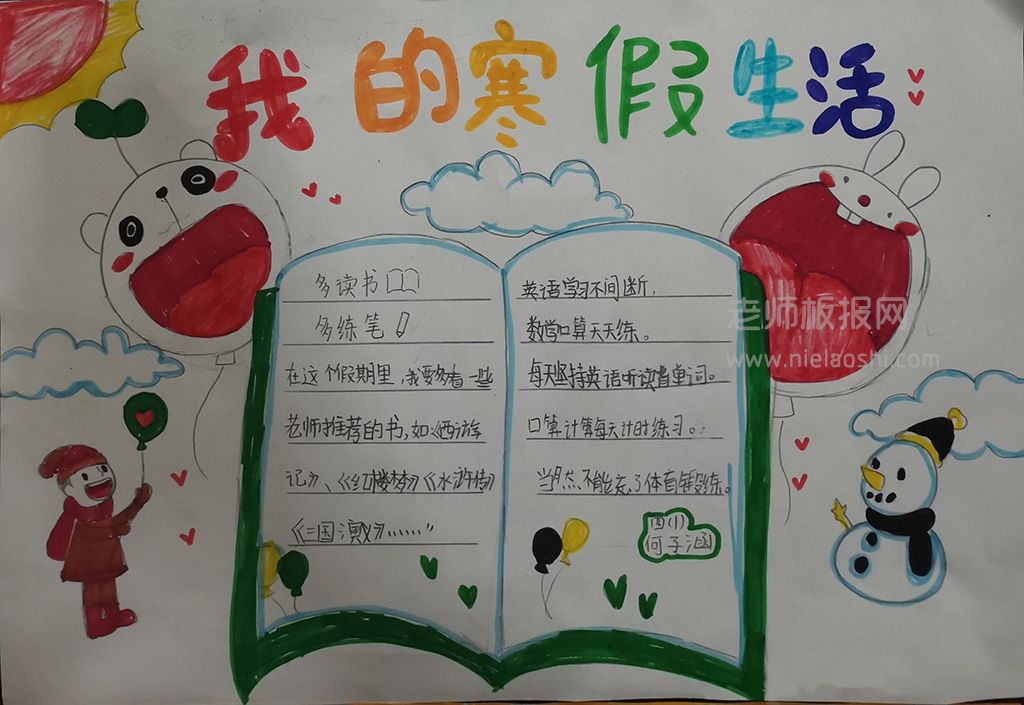 我的寒假生活
多读书
多练笔
在这个假期里,我要多看一些
老师推荐的书,如:《西游
记》、《红楼梦》《水浒传》
《三国演义》······”
英语学习不间断,
数学口算天天练。
每天坚持英语听读背单词。
口算计算每天计时练习。
当然,不能忘了体育锻练。
四(1)
何子涵
老师板报网
www.nielaoshi.com